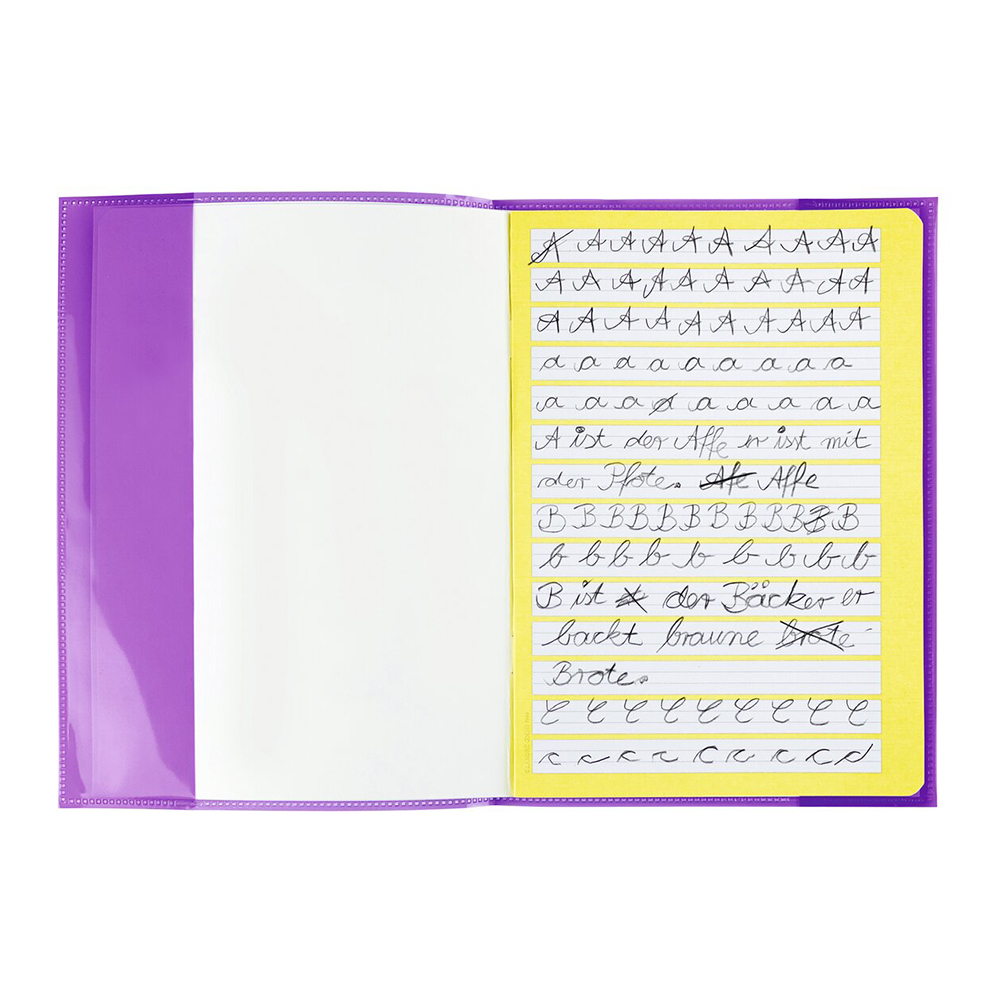 A A A A A A A A A A
A A A A A A A A A A
A A A A A A A A A A
a a a a a a a a a
a a a a a a a a a
A ist der Affe er isst mit
der Pfote. Afe Affe
B B B B B B B B B B B B
b b b b b b b b b
B ist der Bäcker er
backt braune brote
Brote.
C C C C C C C C C
c c c c c c c c c